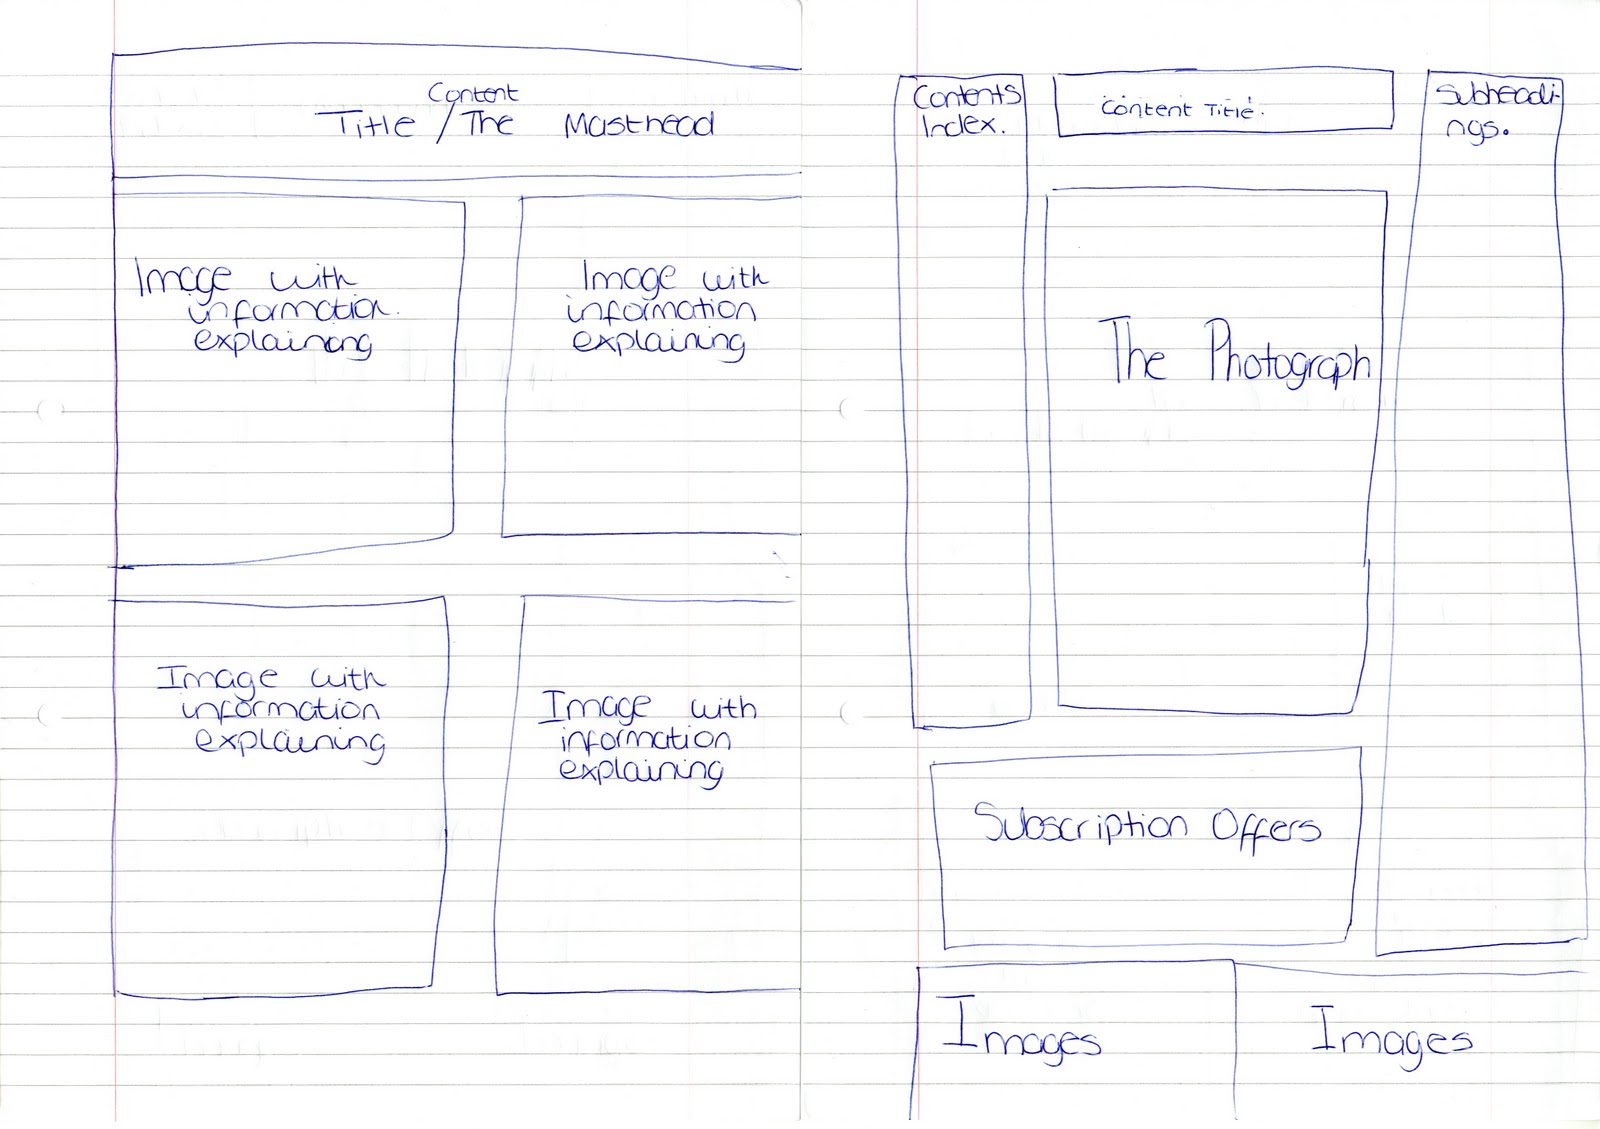 Content
Title / The Masthead
Image with
information
explaining
Image with
information
explaining
Image with
information
explaining
Image with
information
explaining
Contents
Index.
Content Title.
Subheadi-
ngs.
The Photograph
Subscription Offers
Images
Images